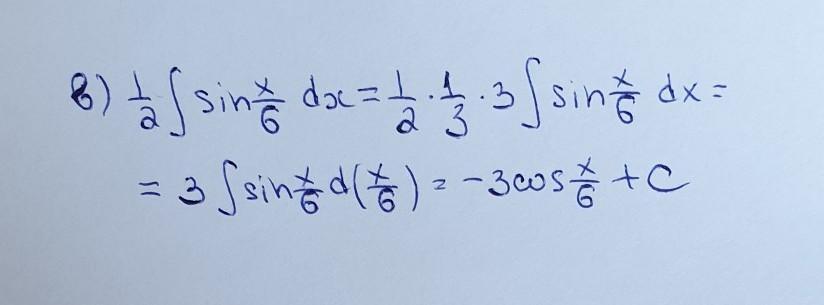 в) 1/2 ∫ sin x/6 dx = 1/2 · 1/3 · 3 ∫ sin x/6 dx =
= 3 ∫ sin x/6 d(x/6) = -3cos x/6 + C